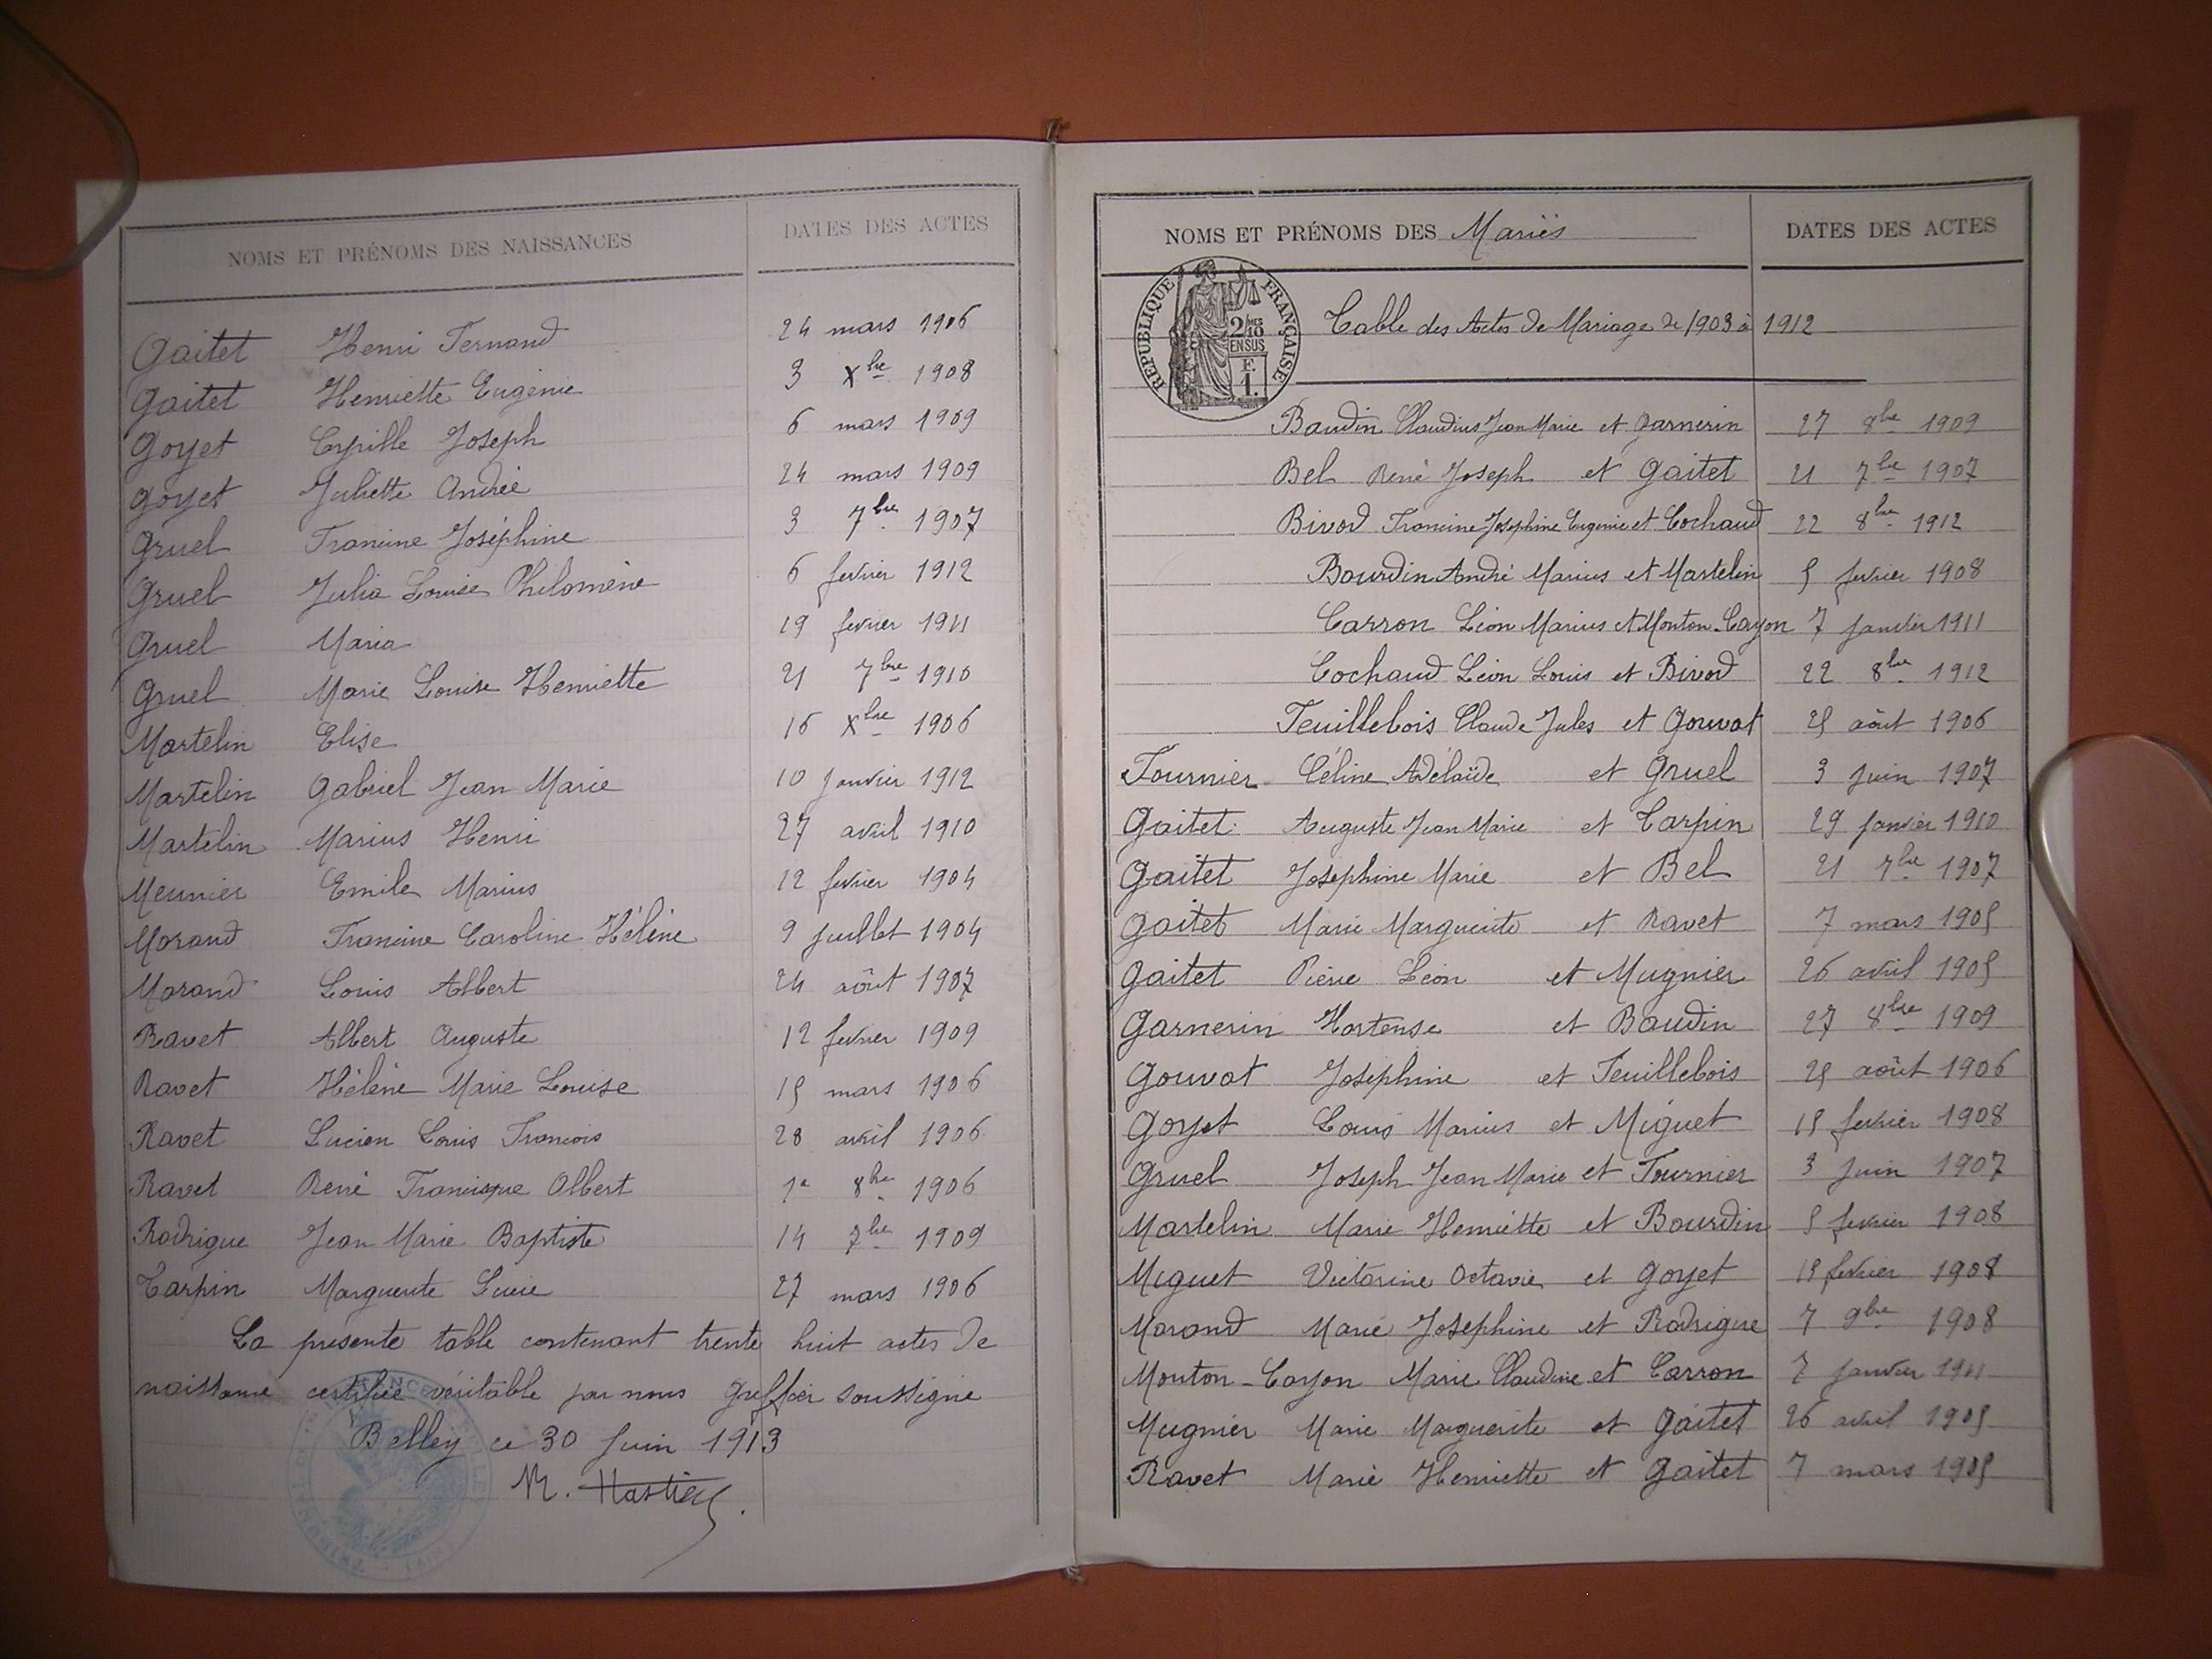 NOMS ET PRÉNOMS DES NAISSANCES DATES DES ACTES
Gaitet Henri Fernand 24 mars 1906
Gaitet Henriette Eugénie 3 Xbre 1908
Goyet Cyrille Joseph 6 mars 1909
Goyet Juliette Andrée 24 mars 1909
Gruel Francine Joséphine 3 7bre 1907
Gruel Julia Louise Philomène 6 fevrier 1912
Gruel Maria 19 fevrier 1911
Gruel Marie Louise Henriette 21 7bre 1910
Martelin Elise 16 Xbre 1906
Martelin Gabriel Jean Marie 10 Janvier 1912
Martelin Marius Henri 27 avril 1910
Meunier Emile Marius 12 fevrier 1904
Morand Francine Caroline Hélène 9 Juillet 1904
Morand Louis Albert 24 août 1907
Ravet Albert Auguste 12 fevrier 1909
Ravet Hélène Marie Louise 15 mars 1906
Ravet Lucien Louis Francois 28 avril 1906
Ravet René Francisque Albert 1e 8bre 1906
Rodrigue Jean Marie Baptiste 14 7bre 1909
Tarpin Marguerite Lucie 27 mars 1906
La presente table contenant trente huit actes de
naissance certifiée véritable par nous Greffier soussigné
Belley ce 30 Juin 1913
NOMS ET PRÉNOMS DES Mariés DATES DES ACTES
RÉPUBLIQUE FRANÇAISE
2/10MES
EN SUS
F.
1.
Table des Actes de Mariage de 1903 à 1912
Baudin Claudius Jean Marie et Garnerin 27 8bre 1909
Bel René Joseph et Gaitet 21 7bre 1907
Bivod Francine Josephine Eugenie et Cochaud 22 8bre 1912
Bourdin André Marius et Martelin 5 fevrier 1908
Carron Léon Marius et Monton-Cayon 7 Janvier 1911
Cochaud Léon Louis et Bivod 22 8bre 1912
Feuillebois Claude Jules et Gouvat 25 août 1906
Fournier Céline Adélaïde et Gruel 3 Juin 1907
Gaitet Auguste Jean Marie et Tarpin 29 Janvier 1910
Gaitet Joséphine Marie et Bel 21 7bre 1907
Gaitet Marie Marguerite et Ravet 7 mars 1905
Gaitet Pierre Léon et Mugnier 26 avril 1905
Garnerin Hortense et Baudin 27 8bre 1909
Gouvat Joséphine et Feuillebois 25 août 1906
Goyet Louis Marius et Miguet 15 fevrier 1908
Gruel Joseph Jean Marie et Fournier 3 Juin 1907
Martelin Marie Henriette et Bourdin 5 fevrier 1908
Miguet Victorine Octavie et Goyet 15 fevrier 1908
Morand Marie Josephine et Rodrigue 7 9bre 1908
Monton-Cayon Marie Claudine et Carron 7 Janvier 1911
Mugnier Marie Marguerite et Gaitet 26 avril 1905
Ravet Marie Henriette et Gaitet 7 mars 1905